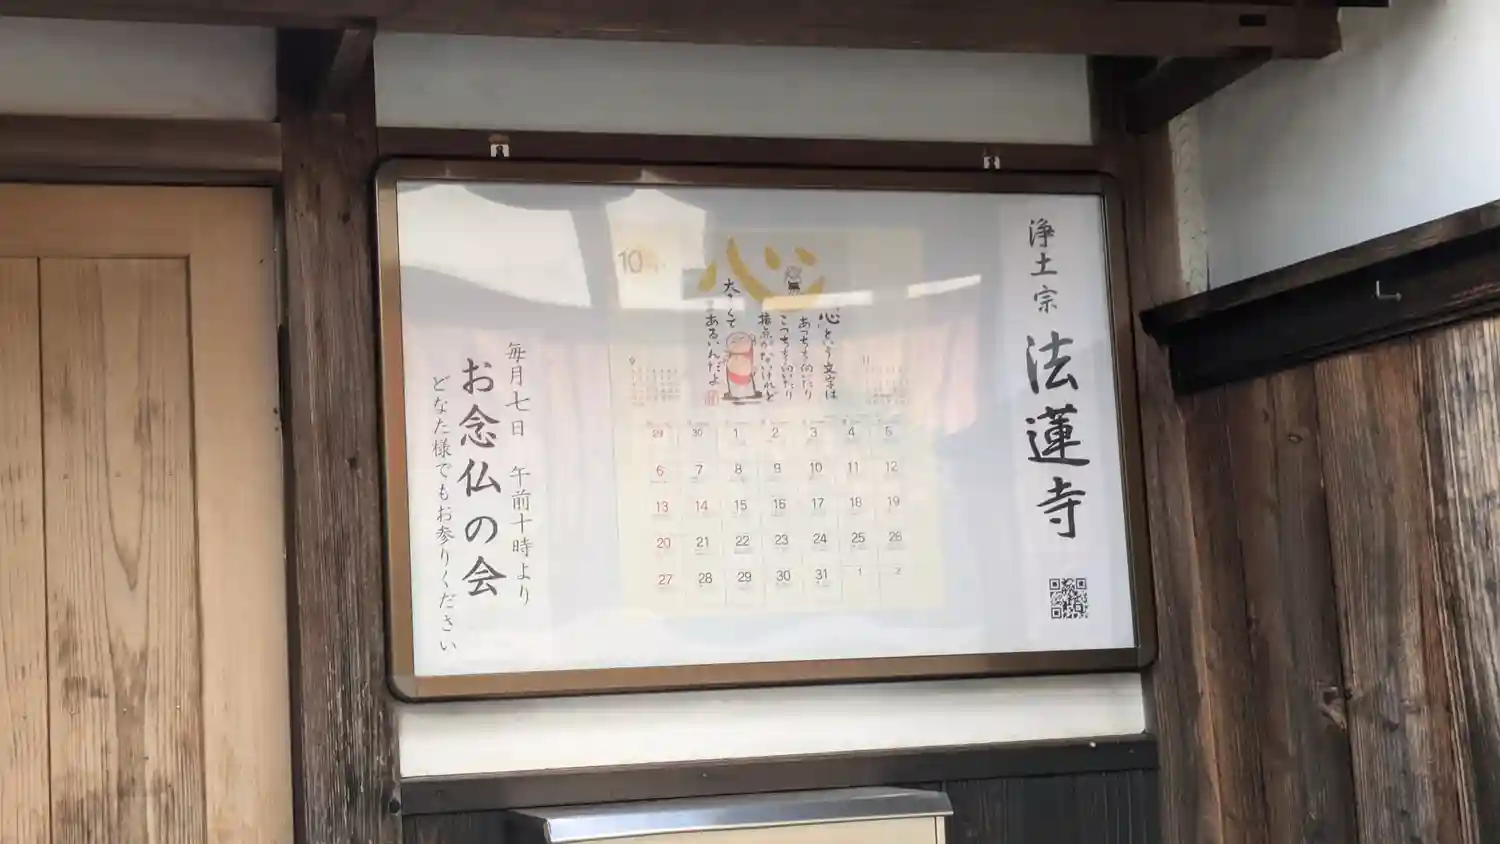 浄土宗 法蓮寺
10
心
心という文字は
あっちを向いたり
こっちを向いたり
接点がないけれど
大きくて
あるいんだよ
9
11
29 30 1 2 3 4 5
6 7 8 9 10 11 12
13 14 15 16 17 18 19
20 21 22 23 24 25 26
27 28 29 30 31 1 2
毎月七日 午前十時より
お念仏の会
どなた様でもお参りください